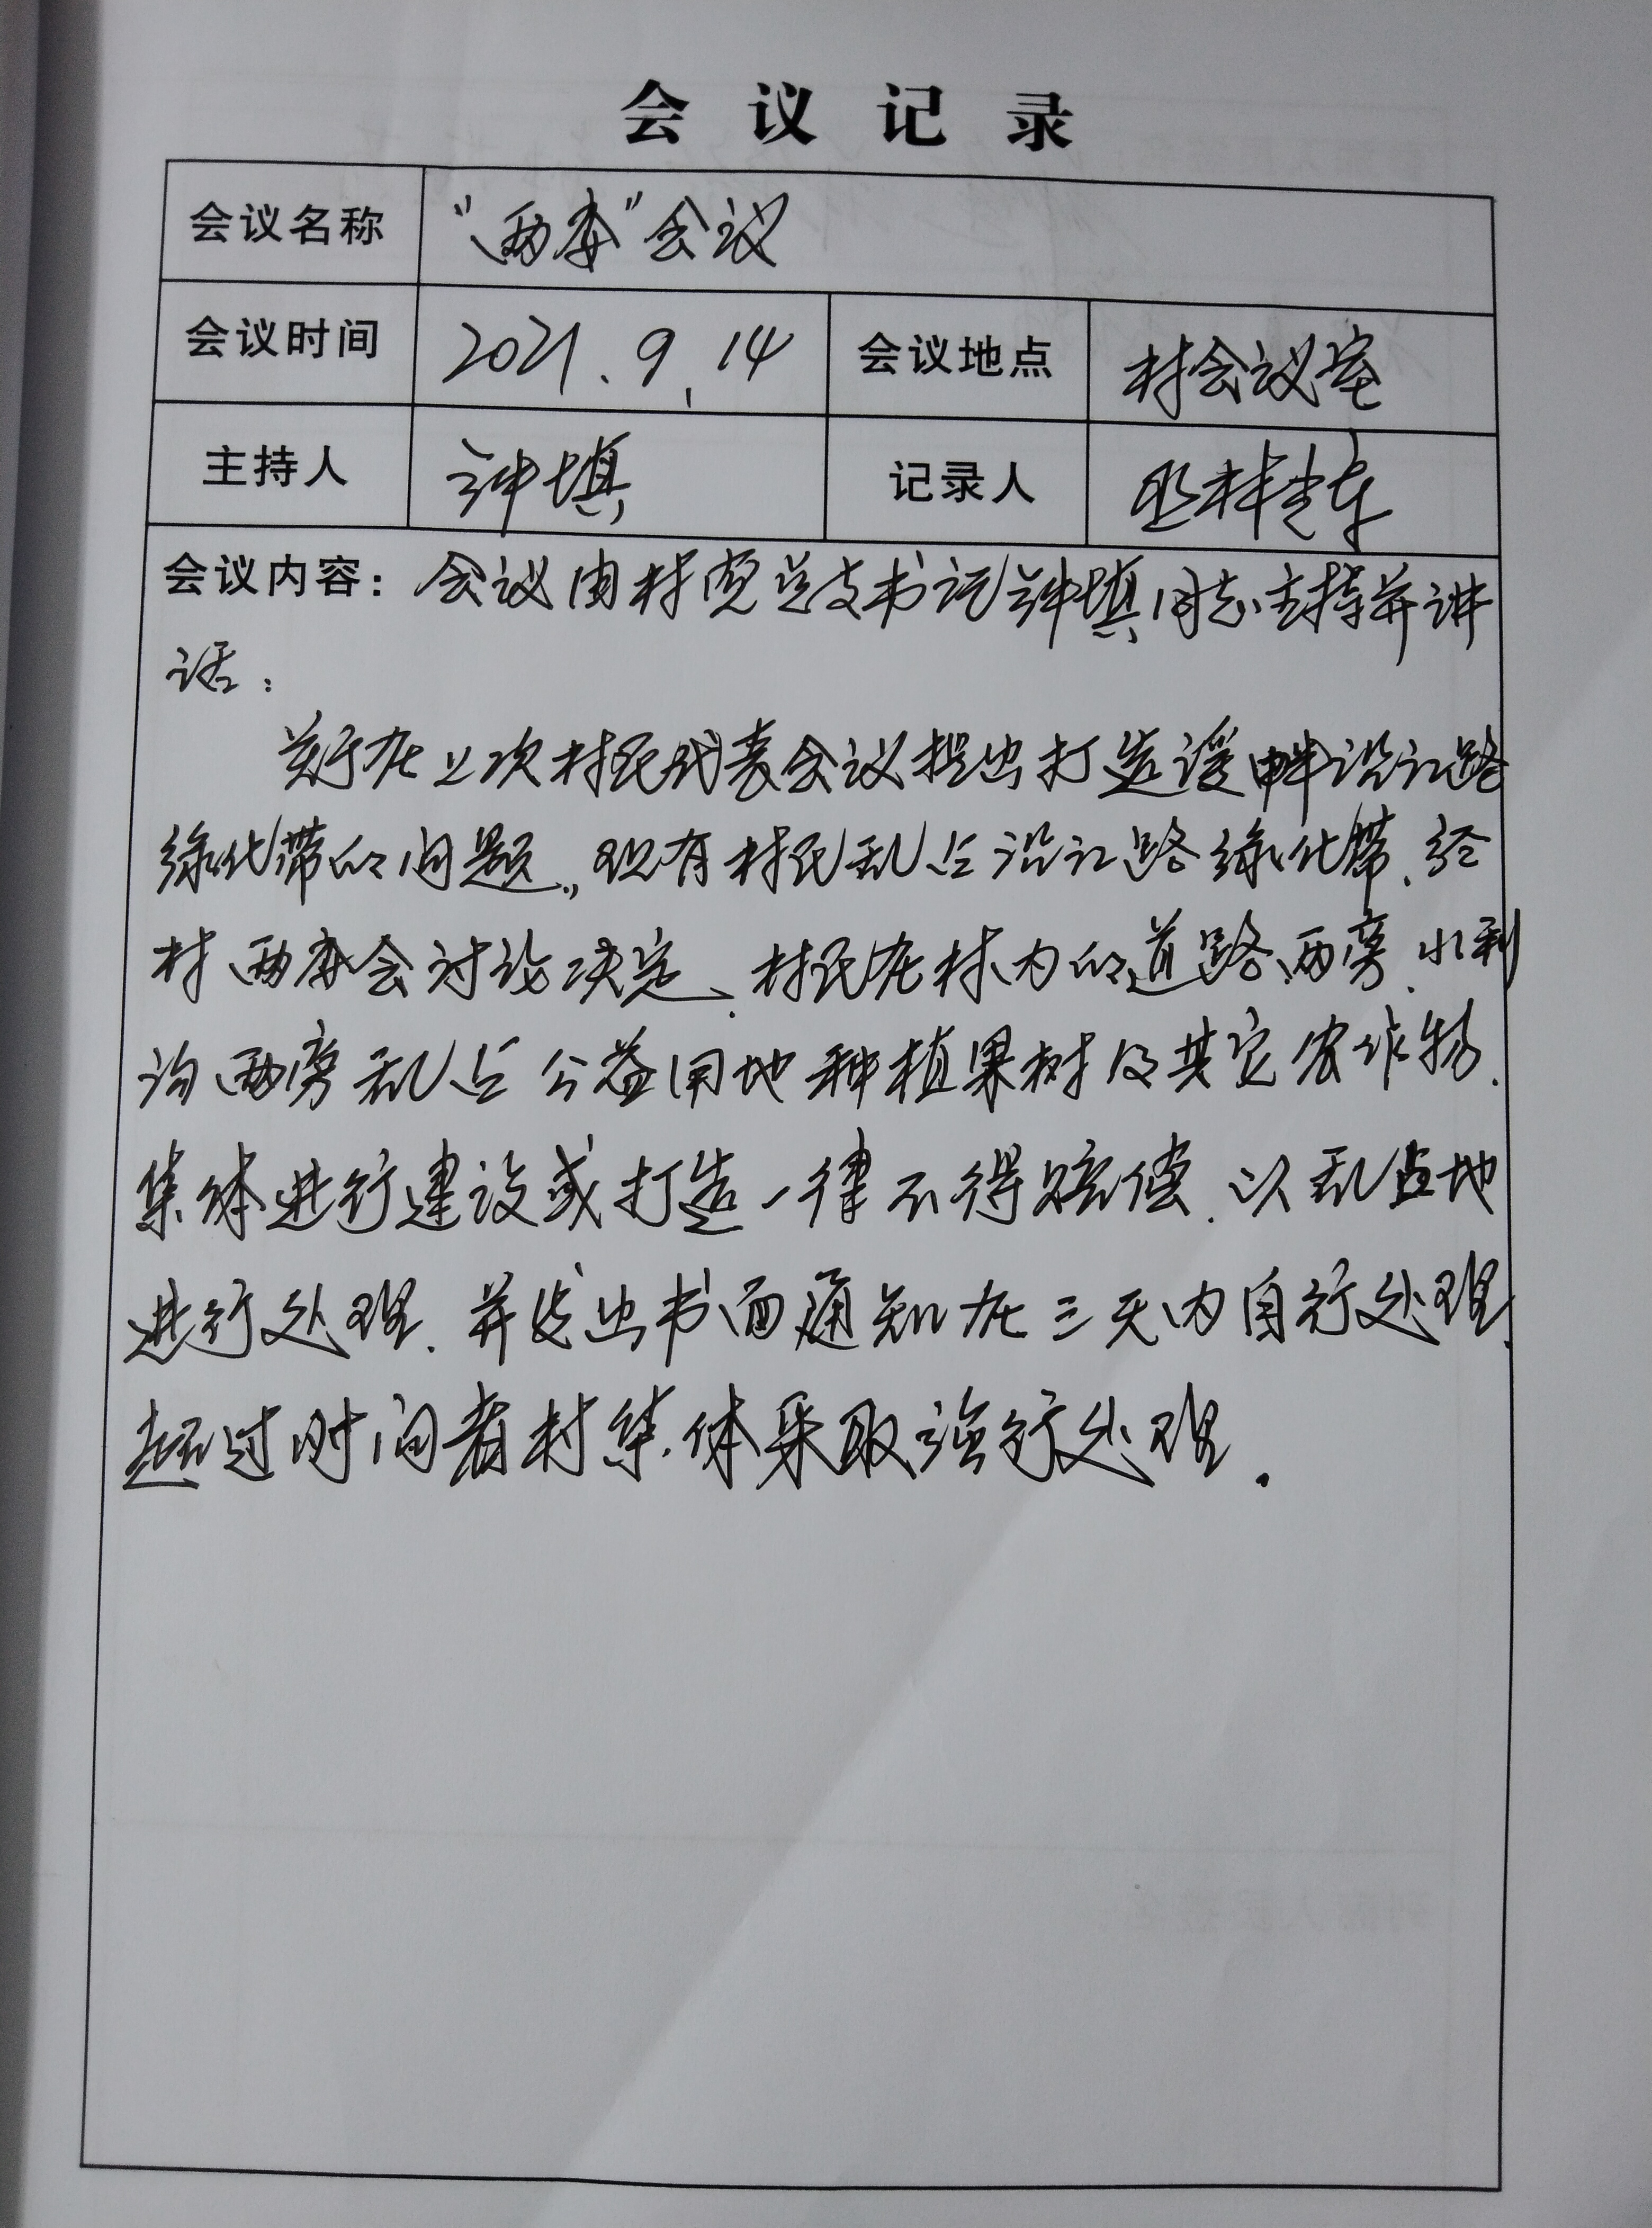 会议记录
会议名称 “两委”会议
会议时间 2021.9.14 会议地点 村会议室
主持人 钟填 记录人
会议内容：会议由村党总支书记钟填同志主持并讲
话：
关于在上次村民代表会议提出打造 沿江路
绿化带的问题，现有村民乱占沿江路绿化带，经
村两委会讨论决定，村民在村内的道路两旁，水利
沟两旁乱占公益用地种植果树及其它农作物，
集体进行建设或打造一律不得赔偿，以乱占地
进行处理，并发出书面通知在三天内自行处理，
超过时间者村集体采取强行处理。